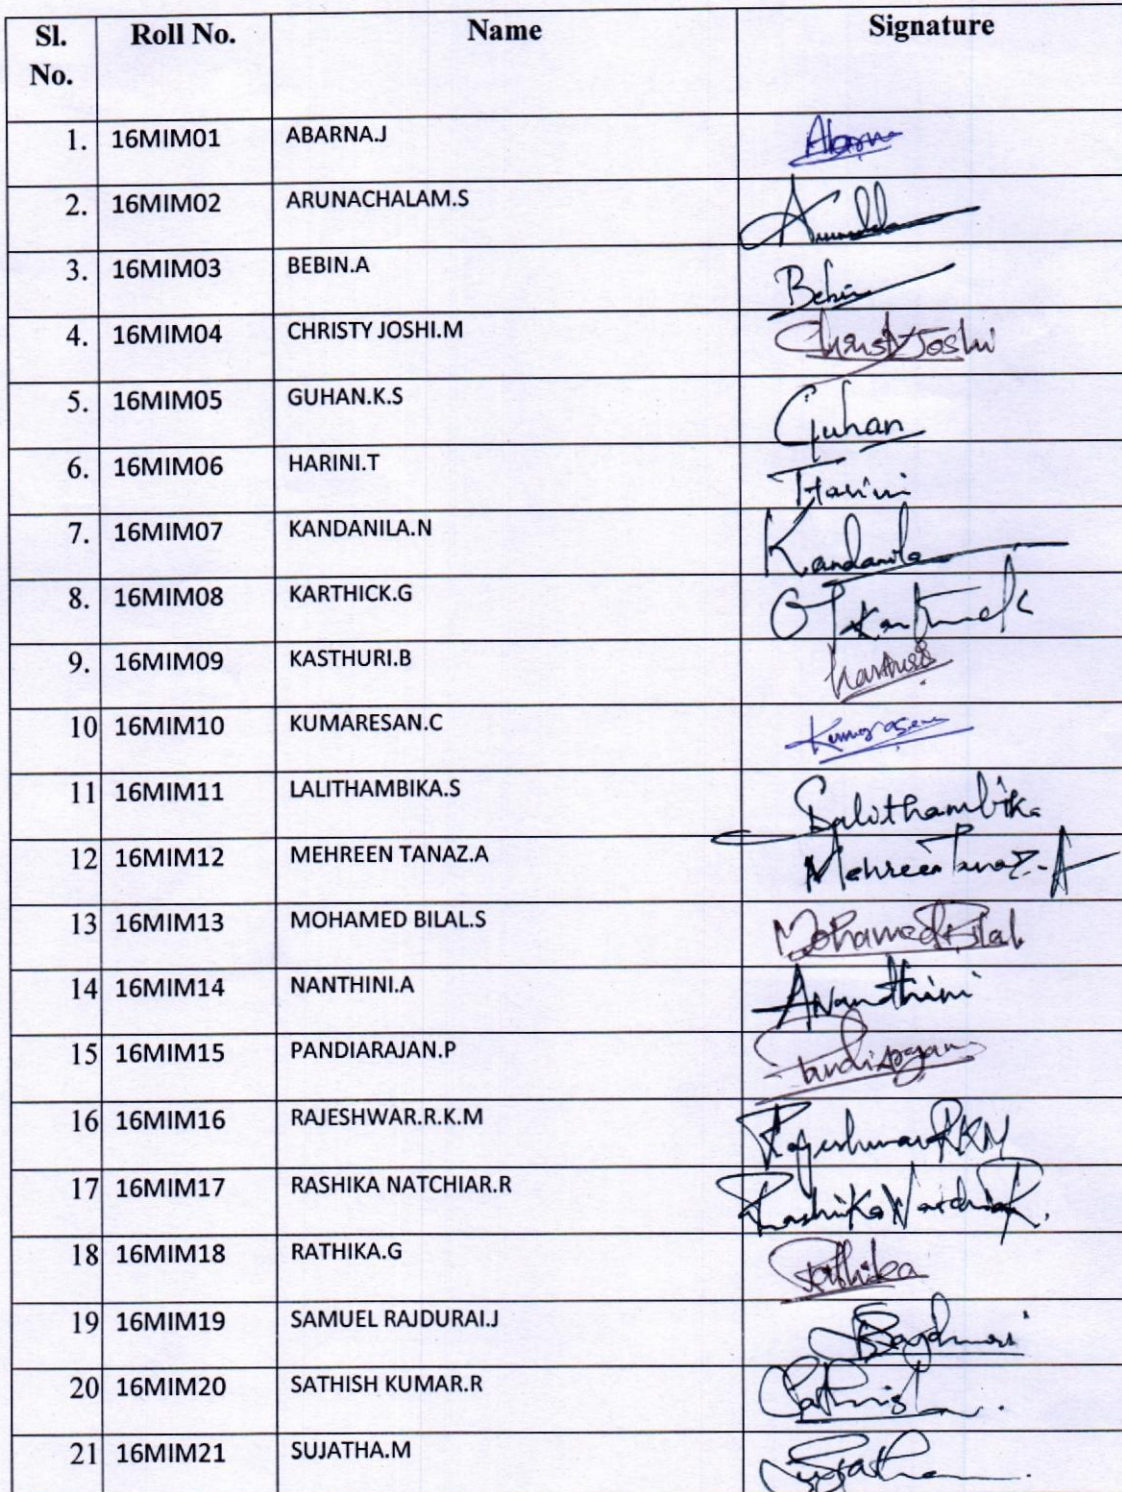 Sl. No. Roll No. Name Signature
1. 16MIM01 ABARNA.J Abarna
2. 16MIM02 ARUNACHALAM.S
3. 16MIM03 BEBIN.A Bebin
4. 16MIM04 CHRISTY JOSHI.M Christy Joshi
5. 16MIM05 GUHAN.K.S Guhan
6. 16MIM06 HARINI.T T Harini
7. 16MIM07 KANDANILA.N Kandanila
8. 16MIM08 KARTHICK.G G Karthick
9. 16MIM09 KASTHURI.B
10 16MIM10 KUMARESAN.C Kumarasen
11 16MIM11 LALITHAMBIKA.S S Lalithambika
12 16MIM12 MEHREEN TANAZ.A Mehreen Tanaz-A
13 16MIM13 MOHAMED BILAL.S Mohamed Bilal
14 16MIM14 NANTHINI.A A Nandhini
15 16MIM15 PANDIARAJAN.P
16 16MIM16 RAJESHWAR.R.K.M Rajeshwar RKM
17 16MIM17 RASHIKA NATCHIAR.R Rashika Natchiar R.
18 16MIM18 RATHIKA.G Rathika
19 16MIM19 SAMUEL RAJDURAI.J
20 16MIM20 SATHISH KUMAR.R Sathish
21 16MIM21 SUJATHA.M Sujatha